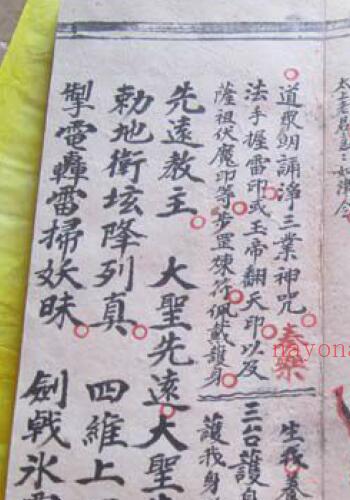 太上老君
道眾朗誦淨三業神咒
奏樂
法手握雷印或玉帝翻天印以及
薩祖伏魔印等步罡煉符佩戴護身
先遠教主 大聖先遠大聖
勅地衛垓降列真 四維上
掣電轟雷掃妖昧 劍戟氷
生我養
三台護身
護我身
nayona